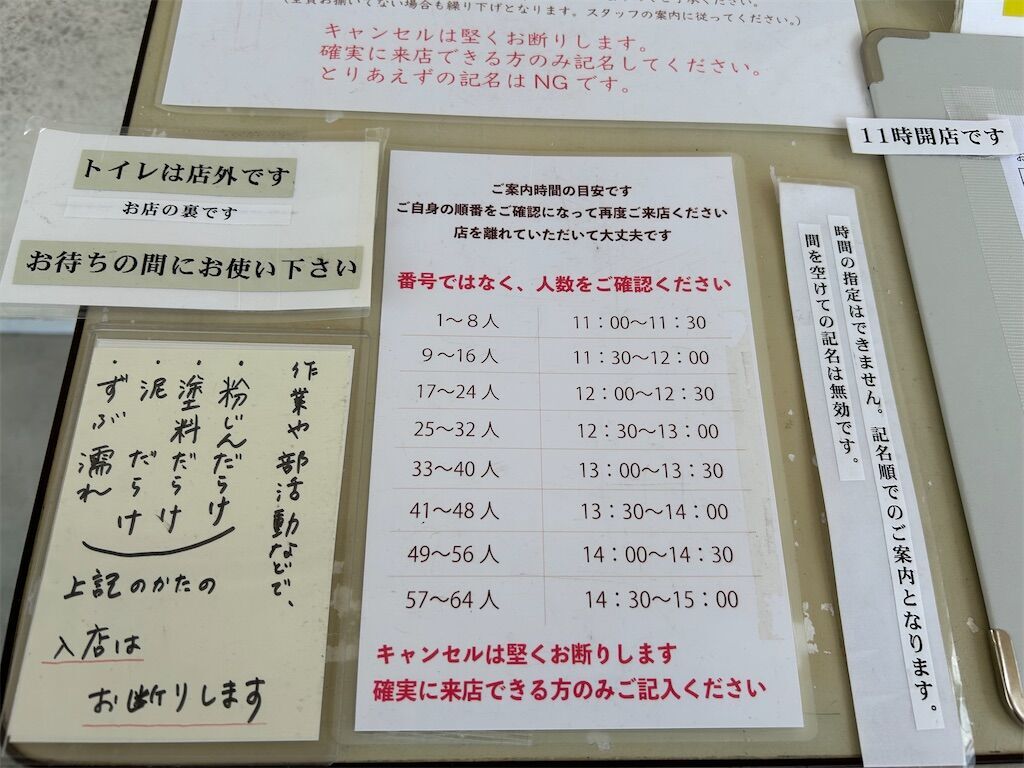 (全員お揃いでない場合も繰り下げとなります。スタッフの案内に従ってください。)
キャンセルは堅くお断りします。
確実に来店できる方のみ記名してください。
とりあえずの記名はNGです。
11時開店です
トイレは店外です
お店の裏です
お待ちの間にお使い下さい
ご案内時間の目安です
ご自身の順番をご確認になって再度ご来店ください
店を離れていただいて大丈夫です
番号ではなく、人数をご確認ください
1〜8人 11:00〜11:30
9〜16人 11:30〜12:00
17〜24人 12:00〜12:30
25〜32人 12:30〜13:00
33〜40人 13:00〜13:30
41〜48人 13:30〜14:00
49〜56人 14:00〜14:30
57〜64人 14:30〜15:00
キャンセルは堅くお断りします
確実に来店できる方のみご記入ください
時間の指定はできません。記名順でのご案内となります。
間を空けての記名は無効です。
作業や部活動などで、
・粉じんだらけ
・塗料だらけ
・泥だらけ
・ずぶ濡れ
上記のかたの
入店は
お断りします